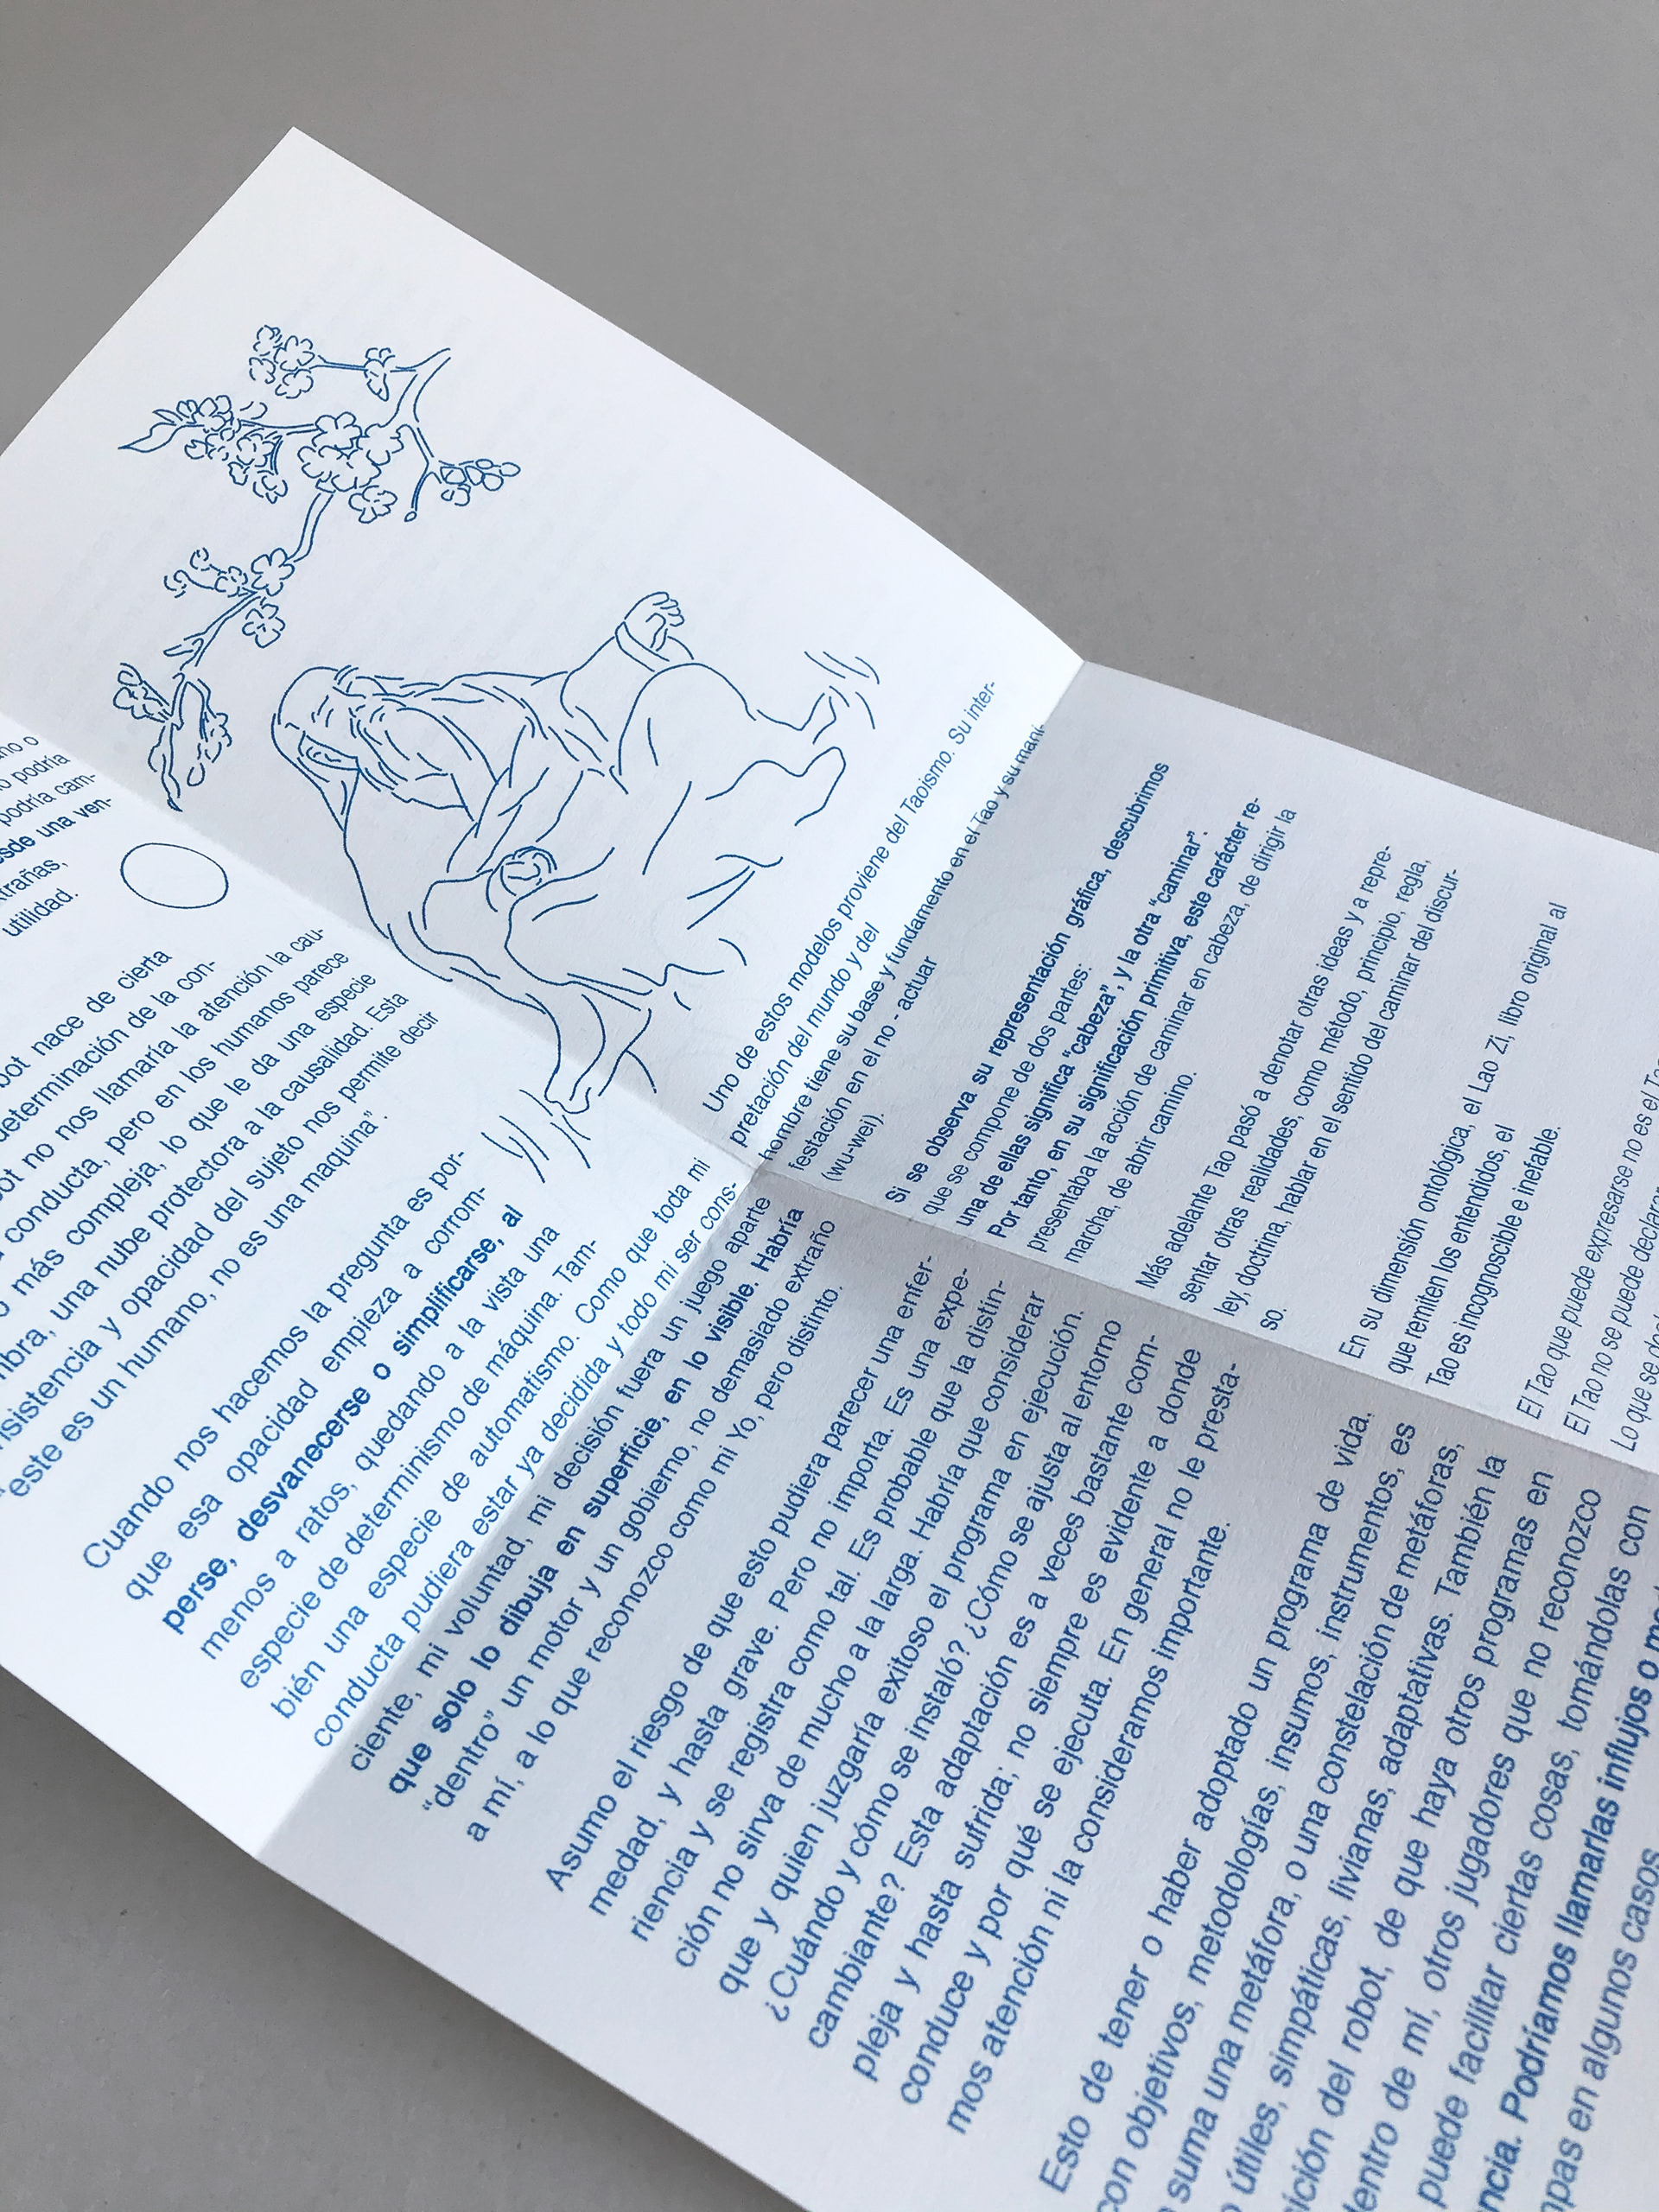 no o
podría
podría cam-
sde una ven-
trañas,
utilidad.
bot nace de cierta
determinación de la con-
bot no nos llamaría la atención la cau-
conducta, pero en los humanos parece
más compleja, lo que le da una especie
mbra, una nube protectora a la causalidad. Esta
nsistencia y opacidad del sujeto nos permite decir
“este es un humano, no es una maquina”.
Cuando nos hacemos la pregunta es por-
que esa opacidad empieza a corrom-
perse, desvanecerse o simplificarse, al
menos a ratos, quedando a la vista una
especie de determinismo de máquina. Tam-
bién una especie de automatismo. Como que toda mi
conducta pudiera estar ya decidida y todo mi ser cons-
ciente, mi voluntad, mi decisión fuera un juego aparte
que solo lo dibuja en superficie, en lo visible. Habría
“dentro” un motor y un gobierno, no demasiado extraño
a mí, a lo que reconozco como mi Yo, pero distinto.
Asumo el riesgo de que esto pudiera parecer una enfer-
medad, y hasta grave. Pero no importa. Es una expe-
riencia y se registra como tal. Es probable que la distin-
ción no sirva de mucho a la larga. Habría que considerar
que y quien juzgaría exitoso el programa en ejecución.
¿Cuándo y cómo se instaló? ¿Cómo se ajusta al entorno
cambiante? Esta adaptación es a veces bastante com-
pleja y hasta sufrida; no siempre es evidente a donde
conduce y por qué se ejecuta. En general no le presta-
mos atención ni la consideramos importante.
Esto de tener o haber adoptado un programa de vida.
con objetivos, metodologías, insumos, instrumentos, es
suma una metáfora, o una constelación de metáforas,
útiles, simpáticas, livianas, adaptativas. También la
ición del robot, de que haya otros programas en
dentro de mí, otros jugadores que no reconozco
puede facilitar ciertas cosas, tomándolas con
ncia. Podríamos llamarlas influjos o mod
mpas en algunos casos
Uno de estos modelos proviene del Taoismo. Su inter-
pretación del mundo y del
hombre tiene su base y fundamento en el Tao y su mani-
festación en el no - actuar
(wu-wei).
Si se observa su representación gráfica, descubrimos
que se compone de dos partes:
una de ellas significa “cabeza”, y la otra “caminar”.
Por tanto, en su significación primitiva, este carácter re-
presentaba la acción de caminar en cabeza, de dirigir la
marcha, de abrir camino.
Más adelante Tao pasó a denotar otras ideas y a repre-
sentar otras realidades, como método, principio, regla,
ley, doctrina, hablar en el sentido del caminar del discur-
so.
En su dimensión ontológica, el Lao Zi, libro original al
que remiten los entendidos, el
Tao es incognoscible e inefable.
El Tao que puede expresarse no es el Ta
El Tao no se puede declarar
Lo que se de